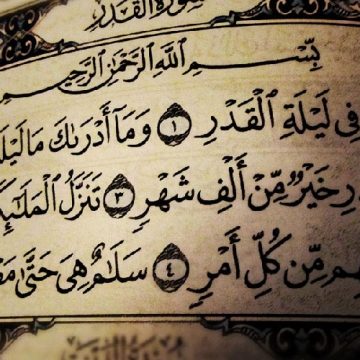 سُورَةُ القَدْرِ
بِسْمِ اللَّهِ الرَّحْمَٰنِ الرَّحِيمِ
فِي لَيْلَةِ ٱلْقَدْرِ ١ وَمَآ أَدْرَىٰكَ مَا لَيْلَ
رِ خَيْرٌ مِّنْ أَلْفِ شَهْرٍ ٣ تَنَزَّلُ ٱلْمَلَٰٓئِكَ
هِم مِّن كُلِّ أَمْرٍ ٤ سَلَٰمٌ هِىَ حَتَّىٰ مَطْ